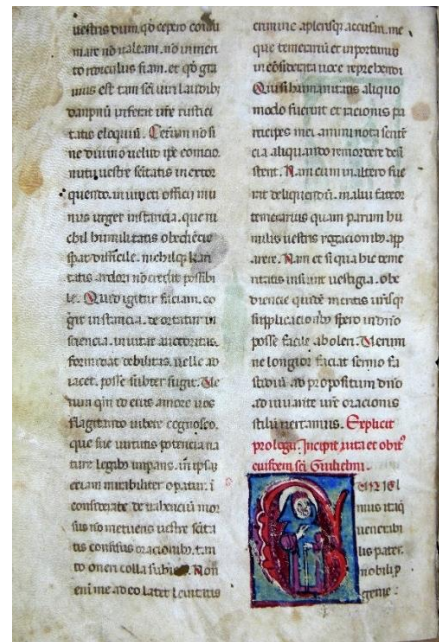 uestris dum qd cepero consu
mare nō ualeam. nō inmeri
to ridiculus fiam. et qd gra
uius est tam sci uiri laudibȝ
dampnū inferat
tatis eloquiū. Ceterum nō si
ne diuino uelud ipe conicio
nutu uestre scitatis in certor
quendo. inuicti officii mu
nus urget instancia. que ni
chil humilitatis obediētie
spat difficile. nichilqȝ kari
tatis ardori nō credit possibi
le. Quid igitur faciam. co
git instancia. de ortatur in
sciencia. inuitat auctoritas.
formidat debilitas. uelle ad
iacet. posse subter fugit. Ue
rum qm̄ to eius amore uos
flagitando uidere cognosco.
que sue uirtutis potencia na
ture legibȝ inpans.
etiam mirabiliter opatur. i
considerate
sus nō metuens uestre scita
tis confisus oracionibȝ. tan
to oneri colla subicio. Non
eni me adeo latet leuitatis
crimine a plerisqȝ accusari. me
que temerariū et inportunū
in cōsiderata uoce reprehendi
Qui si humanitatis aliquo
modo fuerint et racionis pa
rticipes mei animi nota sentē
cia aliquando remordere desi
stent. Nam cum in altero fue
rit deliquendū. malui fateor
temerarius quam parum hu
milis uestris rogacionibȝ app
arere. Nam et si qua hic teme
ritatis insunt uestigia. obe
diencie quidē meritis
supplicacionibȝ spero in dn̄o
posse facile aboleri. Uerum
ne longior faciat sermo fa
stidiū. ad propositum dn̄o
ad iuuante
stilū uertamus. Explicit
prologus. Incipit uita et obitꝰ
eiusdem sci Guilhelmi.
muis itaqȝ
uenerabi
lis pater.
nobili
genere